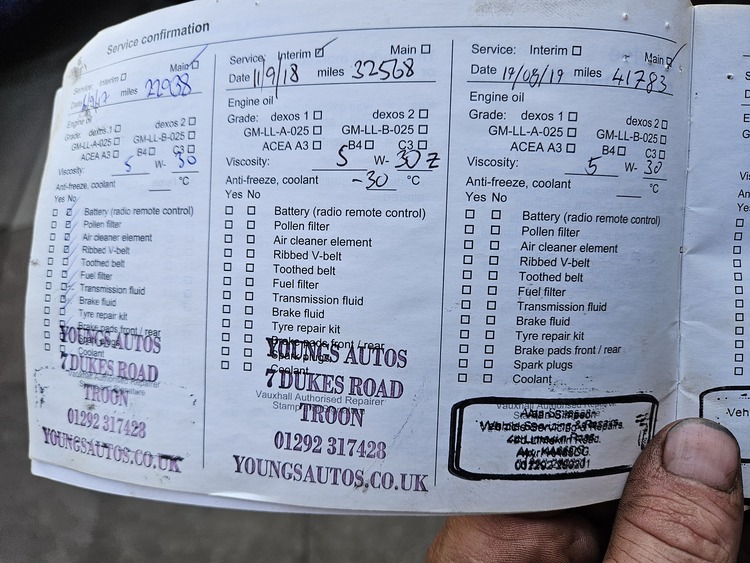 Service confirmation
Service: Interim ☐ Main ☑
Date miles 22938
Engine oil
Grade: dexos 1 ☐ dexos 2 ☐
GM-LL-A-025 ☐ GM-LL-B-025 ☐
ACEA A3 ☐ B4 ☐ C3 ☐
Viscosity: 5 W- 30
Anti-freeze, coolant °C
Yes No
Battery (radio remote control)
Pollen filter
Air cleaner element
Ribbed V-belt
Toothed belt
Fuel filter
Transmission fluid
Brake fluid
Tyre repair kit
Brake pads front / rear
Coolant
YOUNGS AUTOS
7 DUKES ROAD
TROON
01292 317428
YOUNGSAUTOS.CO.UK
Service: Interim ☑ Main ☐
Date 11/9/18 miles 32568
Engine oil
Grade: dexos 1 ☐ dexos 2 ☐
GM-LL-A-025 ☐ GM-LL-B-025 ☐
ACEA A3 ☐ B4 ☐ C3 ☐
Viscosity: 5 W- 30
Anti-freeze, coolant -30 °C
Yes No
Battery (radio remote control)
Pollen filter
Air cleaner element
Ribbed V-belt
Toothed belt
Fuel filter
Transmission fluid
Brake fluid
Tyre repair kit
Brake pads front / rear
Spark plugs
Coolant
Vauxhall Authorised Repairer
Stamp
YOUNGS AUTOS
7 DUKES ROAD
TROON
01292 317428
YOUNGSAUTOS.CO.UK
Service: Interim ☐ Main ☑
Date miles 41783
Engine oil
Grade: dexos 1 ☐ dexos 2 ☐
GM-LL-A-025 ☐ GM-LL-B-025 ☐
ACEA A3 ☐ B4 ☐ C3 ☐
Viscosity: 5 W- 30
Anti-freeze, coolant °C
Yes No
Battery (radio remote control)
Pollen filter
Air cleaner element
Ribbed V-belt
Toothed belt
Fuel filter
Transmission fluid
Brake fluid
Tyre repair kit
Brake pads front / rear
Spark plugs
Coolant
Vauxhall Authorised Repairer